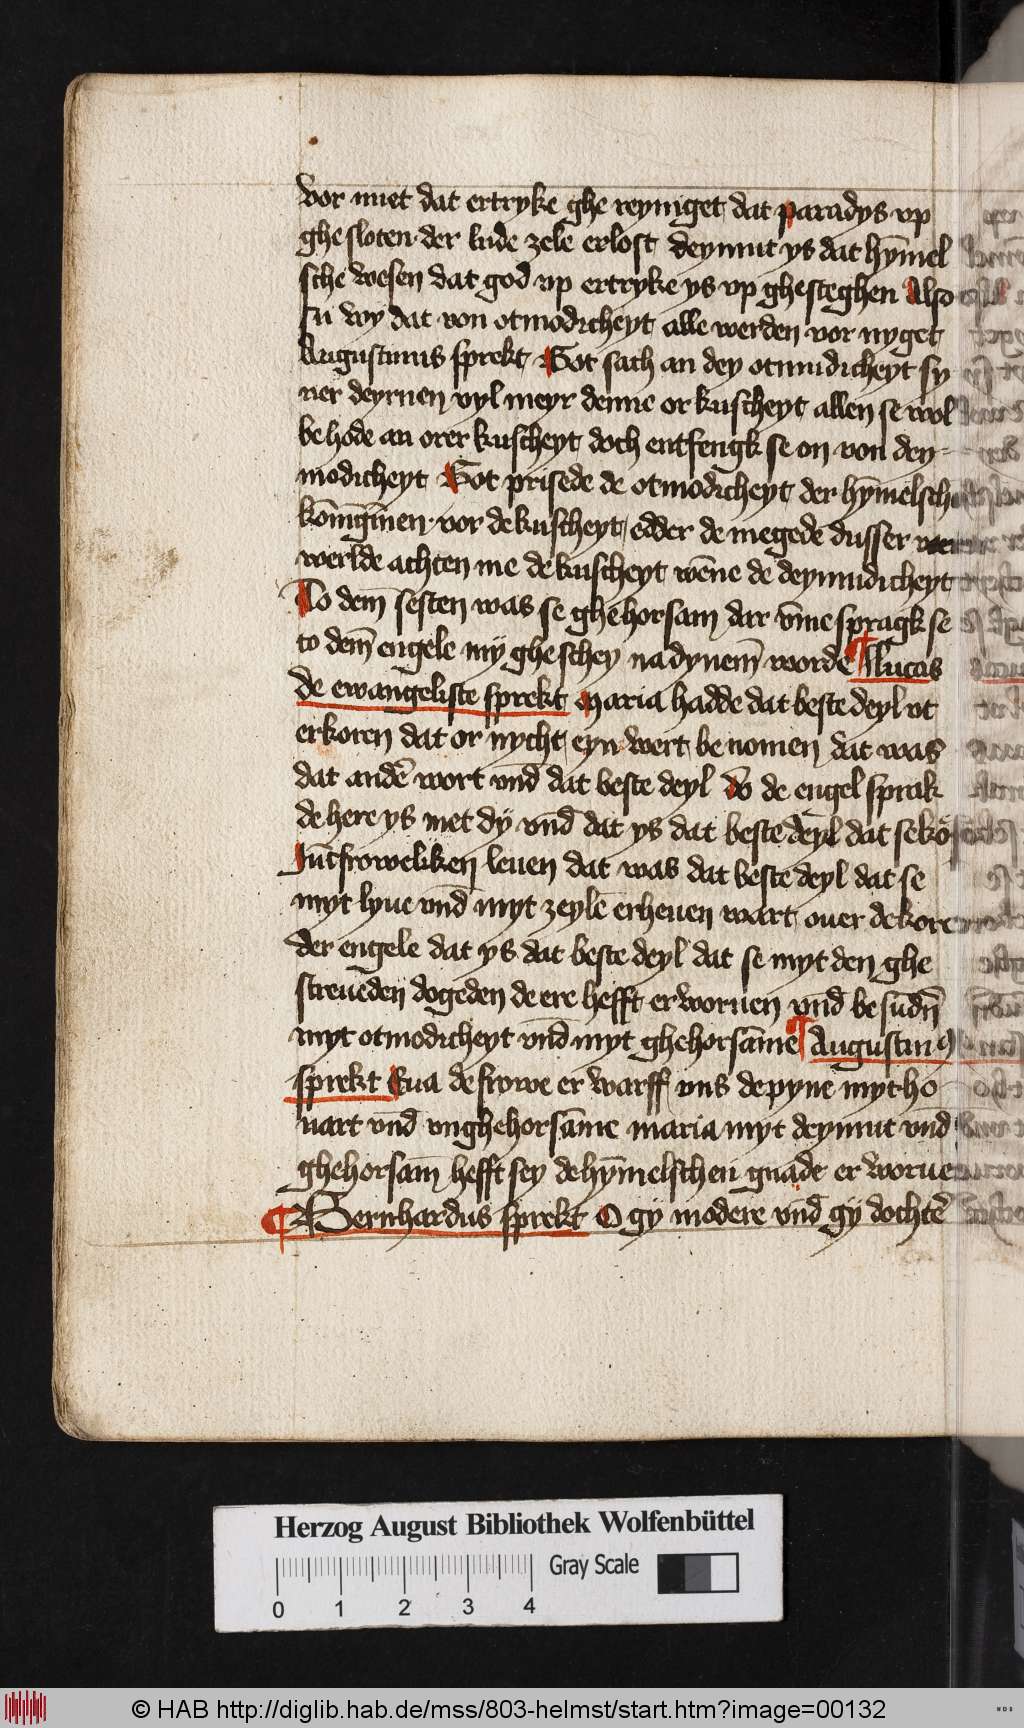 vor niiet dat ertryke ghe reyniget dat paradys vp
ghe sloten der lude zele erlost deymut ys dat hȳmel
sche wesen dat god vp ertryke ys vp ghesteghen Also
su wy dat von otmodicheyt alle werden vor nyget
Augustinus sprekt Got sach an dey otmudicheyt sy
ner deyrnen vyl meyr denne or kuscheyt allen se wol
behode an orer kuscheyt doch entfengk se on von dey-
modicheyt Got prisede de otmodicheyt der hȳmelsch
vor de kuscheyt edder de megede dusser
werlde achten me de kuscheyt wēne de deymudicheyt
To dem sesten was se ghehorsam dar vm̄e spragk se
to dem̄ engele my ghe schey na dynem̄ worde ¶ Lucas
de ewangeliste sprekt maria hadde dat beste deyl vt
erkoren dat or nycht eyn wert be nomen dat was
dat andē wort vnd̄ dat beste deyl do de engel sprak
de here ys met dÿ vnd̄ dat ys dat beste deyl dat se kōs
Jūcfroweliken leuen dat was dat beste deyl dat se
myt lyue vnd̄ myt zeylē erheuen wart ouer de kore
der engele dat ys dat beste deyl dat se myt den ghe
streueden dogeden de ere hefft erworuen vnd̄ be sūdn̄
myt otmodicheyt vnd̄ myt ghehorsām̄e ¶ Augustin9
sprekt Eua de frowe er warff vns de pyne myt ho
uart vnd̄ vnghehorsām̄e maria myt deymut vnd̄
ghehorsam̄ hefft sey de hȳmelschen gnade er worue
¶ Bernhardus sprekt O gy modere vnd̄ gÿ dochtē
Herzog August Bibliothek Wolfenbüttel
Gray Scale
0 1 2 3 4
© HAB http://diglib.hab.de/mss/803-helmst/start.htm?image=00132